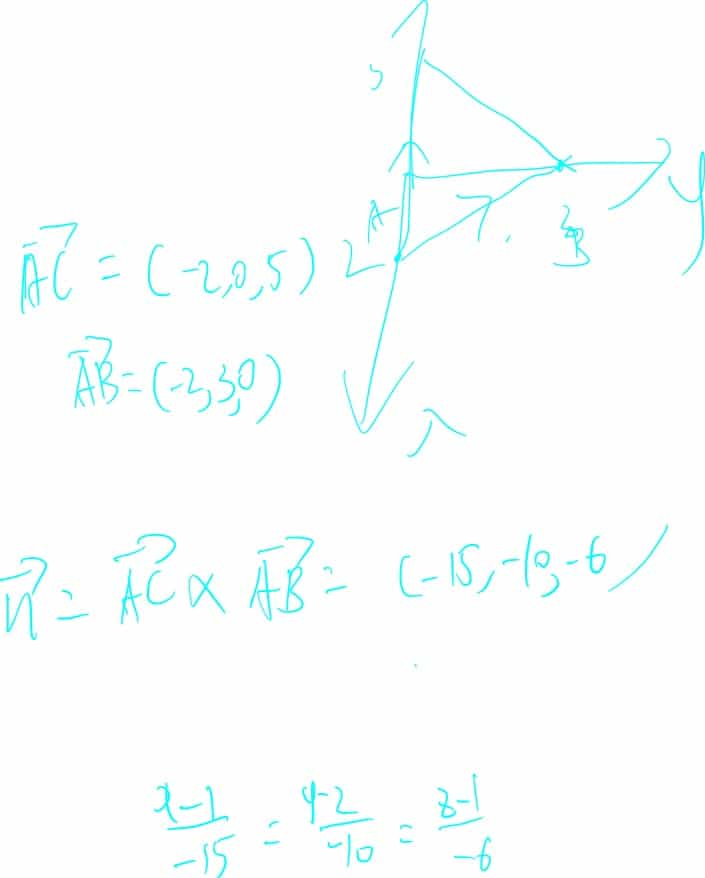 5
y
A
B
2
x
\vec{AC} = (-2,0,5)
\vec{AB} = (-2,3,0)
\vec{n} = \vec{AC} × \vec{AB} = (-15,-10,-6)
\frac{x-1}{-15} = \frac{y-2}{-10} = \frac{z-1}{-6}